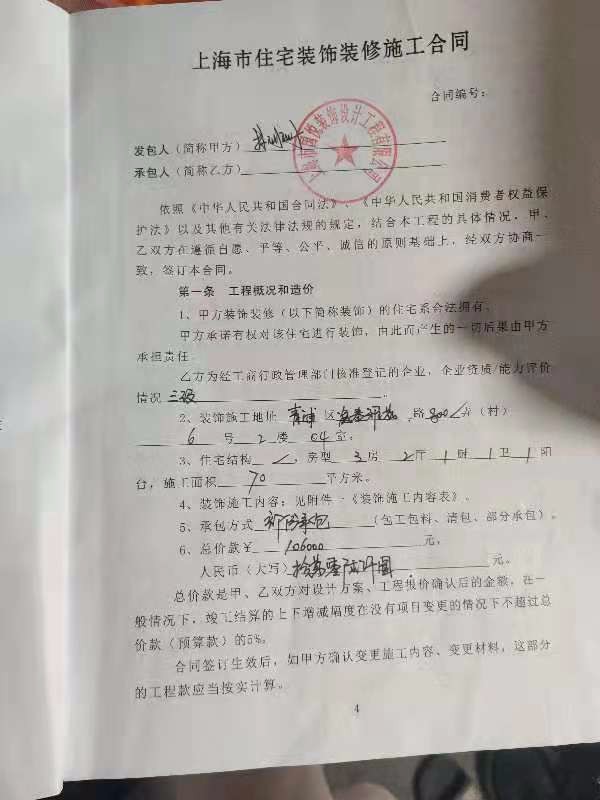 上海市住宅装饰装修施工合同
合同编号：
发包人（简称甲方）
承包人（简称乙方）
依照《中华人民共和国合同法》、《中华人民共和国消费者权益保
护法》以及其他有关法律法规的规定，结合本工程的具体情况，甲、
乙双方在遵循自愿、平等、公平、诚信的原则基础上，经双方协商一
致，签订本合同。
第一条 工程概况和造价
1、甲方装饰装修（以下简称装饰）的住宅系合法拥有。
甲方承诺有权对该住宅进行装饰，由此而产生的一切后果由甲方
承担责任。
乙方为经工商行政管理部门核准登记的企业，企业资质/能力评价
情况 三级
2、装饰施工地址 青浦 区 路 800 弄（村）
6 号 2 楼 04 室；
3、住宅结构 ，房型 3 房 2 厅 1 厨 1 卫 1 阳
台，施工面积 70 平方米。
4、装饰施工内容：见附件一《装饰施工内容表》。
5、承包方式 部份承包 （包工包料、清包、部分承包）。
6、总价款¥ 106000 元，
人民币（大写） 拾万零陆仟圆 元。
总价款是甲、乙双方对设计方案、工程报价确认后的金额，在一
般情况下，竣工结算的上下增减幅度在没有项目变更的情况下不超过总
价款（预算款）的5%。
合同签订生效后，如甲方确认变更施工内容、变更材料，这部分
的工程款应当按实计算。
4